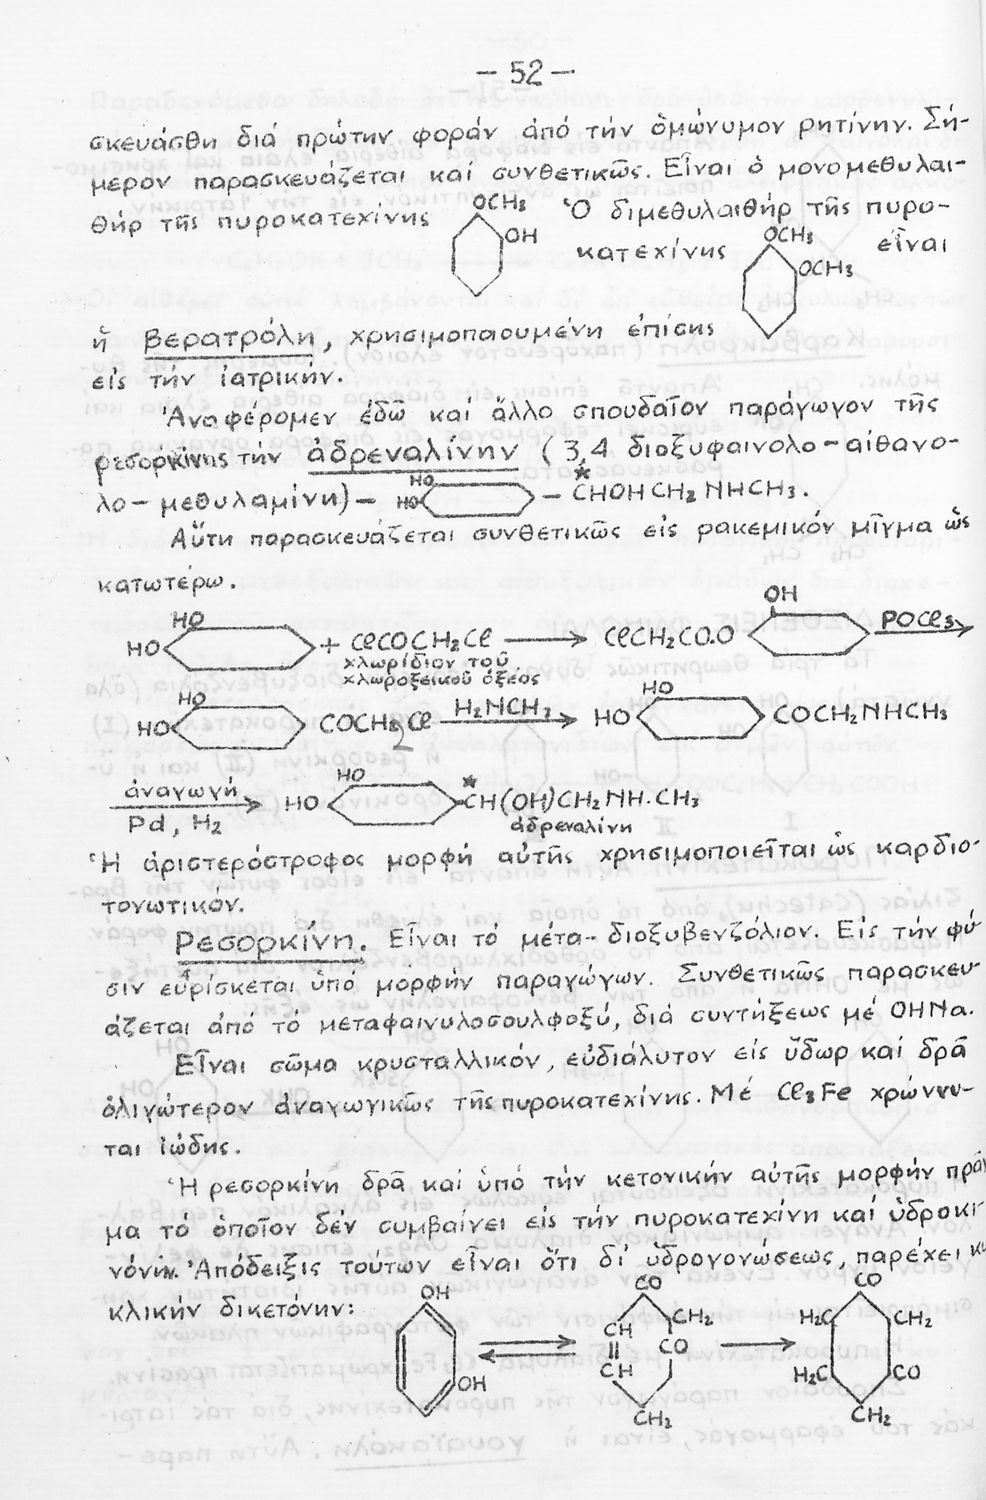 — 52 —
σκευάσθη διά πρώτην φοράν ἀπό τήν ὁμώνυμον ρητίνην. Σή-
μερον παρασκευάζεται καί συνθετικῶς. Εἶναι ὁ μονομεθυλαι-
θήρ τῆς πυροκατεχίνης OCH₃ OH Ὁ διμεθυλαιθήρ τῆς πυρο-
κατεχίνης OCH₃ OCH₃ εἶναι
ἤ βερατρόλη, χρησιμοπαουμένη ἐπίσης
εἰς τήν ἰατρικήν.
Ἀναφέρομεν ἐδῶ καί ἄλλο σπουδαῖον παράγωγον τῆς
ρεσορκίνης τήν ἀδρεναλίνην (3,4 διοξυφαινολο-αἰθανο-
λο-μεθυλαμίνη)— HO HO — C*HOHCH₂NHCH₃.
Αὔτη παρασκευάζεται συνθετικῶς εἰς ρακεμικόν μῖγμα ὡς
κατωτέρω.
HO HO + ClCOCH₂Cl ⟶ ClCH₂CO.O OH POCl₃ ⟶
χλωρίδιον τοῦ
χλωροξεικοῦ ὀξέος
HO HO COCH₂Cl H₂NCH₃ ⟶ HO HO COCH₂NHCH₃
ἀναγωγή ⟶ Pd, H₂ HO HO C*H(OH)CH₂NH.CH₃
ἀδρεναλίνη
Ἡ ἀριστερόστροφος μορφή αὐτῆς χρησιμοποιεῖται ὡς καρδιο-
τονωτικόν.
Ρεσορκίνη. Εἶναι τό μέτα-διοξυβενζόλιον. Εἰς τήν φύ-
σιν εὑρίσκεται ὑπό μορφήν παραγώγων. Συνθετικῶς παρασκευ-
άζεται ἀπο τό μεταφαινυλοσουλφοξύ, διά συντήξεως μέ OHNa.
Εἶναι σῶμα κρυσταλλικόν, εὐδιάλυτον εἰς ὕδωρ καί δρᾶ
ὀλιγώτερον ἀναγωγικῶς τῆς πυροκατεχίνης. Μέ Cl₃Fe χρώννυ-
ται ἰώδης.
Ἡ ρεσορκίνη δρᾶ καί ὑπό τήν κετονικήν αὐτῆς μορφήν πρᾶγ
μα τό ὁποῖον δέν συμβαίνει εἰς τήν πυροκατεχίνη καί ὑδροκι
νόνην. Ἀπόδειξις τούτων εἶναι ὅτι δι' ὑδρογονώσεως, παρέχει κυ
κλικήν δικετόνην:
OH OH ⇌ CO CH₂ CO CH₂ CH CH ⟶ CO CH₂ CO CH₂ H₂C H₂C